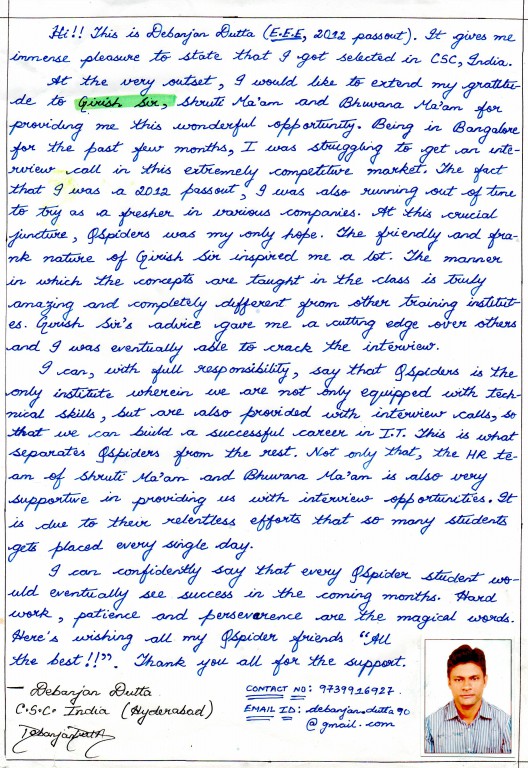 Hi!! This is Debanjan Dutta (E.E.E, 2012 passout). It gives me
immense pleasure to state that I got selected in CSC, India.
At the very outset, I would like to extend my gratitu-
de to Girish Sir, Shruti Ma'am and Bhuvana Ma'am for
providing me this wonderful opportunity. Being in Bangalore
for the past few months, I was struggling to get an inte-
rview call in this extremely competitive market. The fact
that I was a 2012 passout, I was also running out of time
to try as a fresher in various companies. At this crucial
juncture, QSpiders was my only hope. The friendly and fra-
nk nature of Girish Sir inspired me a lot. The manner
in which the concepts are taught in the class is truly
amazing and completely different from other training institut-
es. Girish Sir's advice gave me a cutting edge over others
and I was eventually able to crack the interview.
I can, with full responsibility, say that QSpiders is the
only institute wherein we are not only equipped with tech-
nical skills, but are also provided with interview calls, so
that we can build a successful career in I.T. This is what
separates QSpiders from the rest. Not only that, the HR te-
am of Shruti Ma'am and Bhuvana Ma'am is also very
supportive in providing us with interview opportunities. It
is due to their relentless efforts that so many students
gets placed every single day.
I can confidently say that every QSpider student wo-
uld eventually see success in the coming months. Hard
work, patience and perseverance are the magical words.
Here's wishing all my QSpider friends "All
the best!!". Thank you all for the support.
— Debanjan Dutta
C.S.C. India (Hyderabad)
Debanjan Dutta
CONTACT NO: 9739916927.
EMAIL ID: debanjan.dutta90
@gmail.com